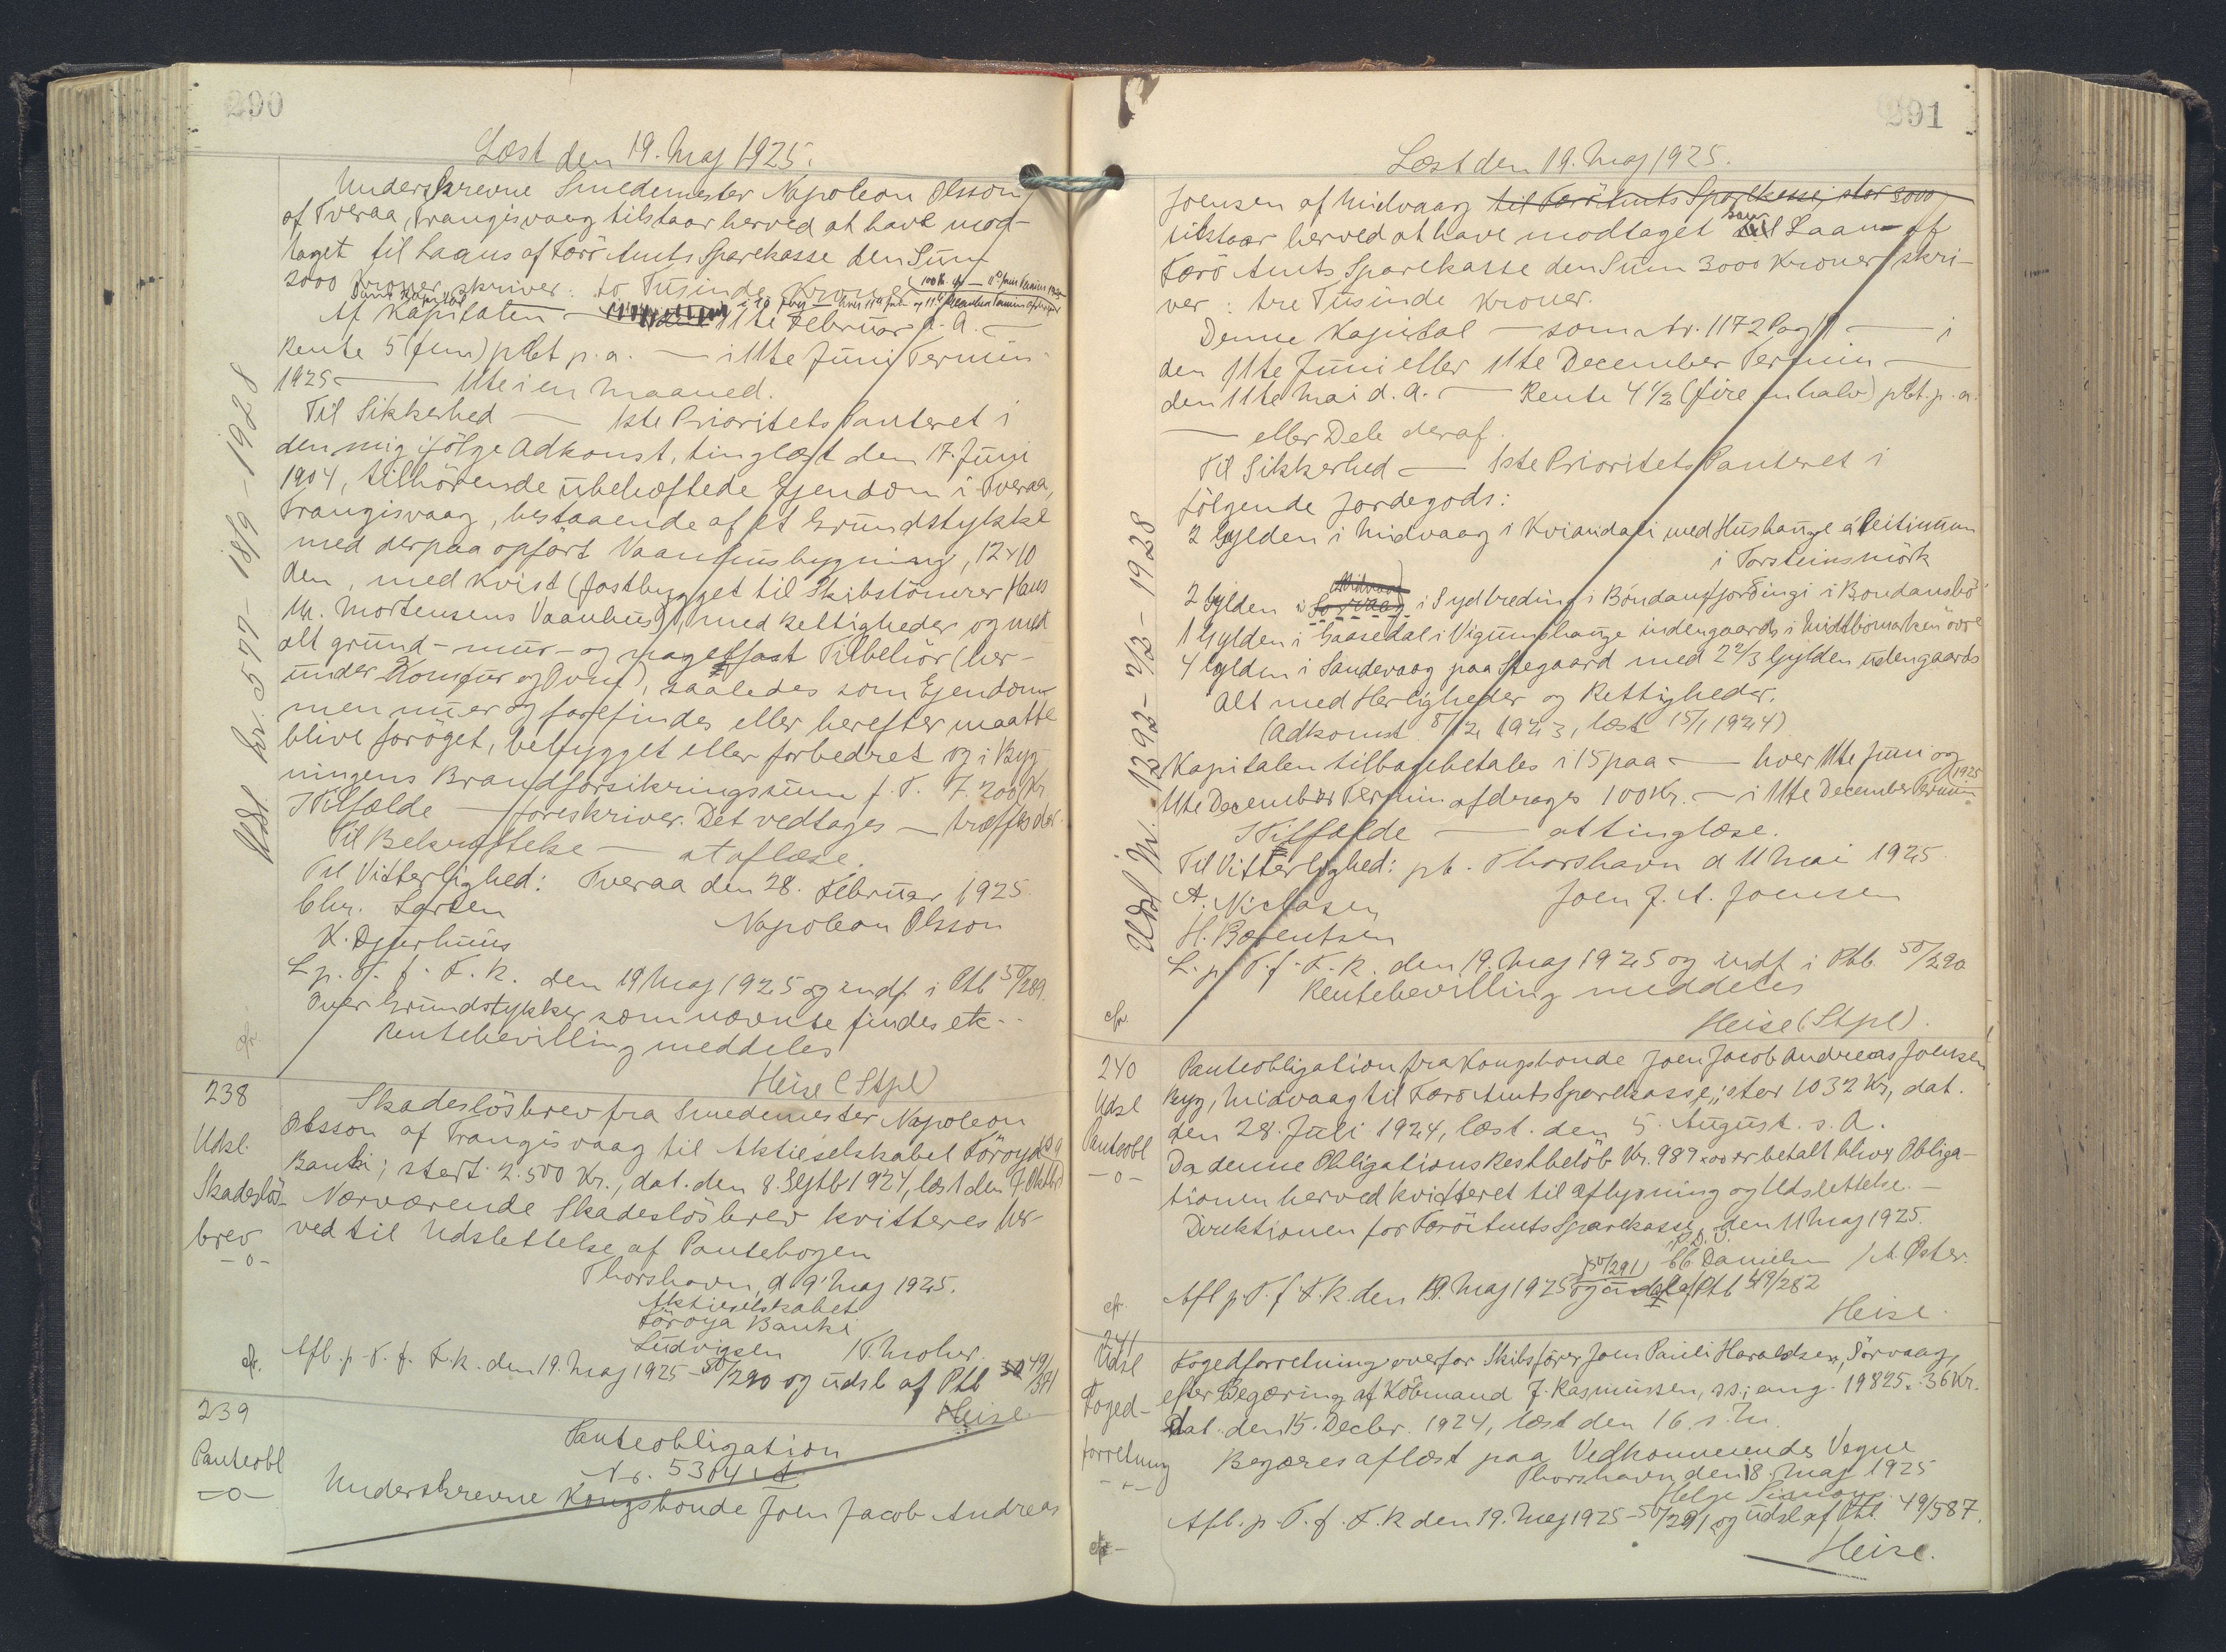 290
Læst den 19. Maj 1925.
Underskrevne Smedemester Napoleon Olsson
af Tveraa, Trangisvaag tilstaar herved at have mod-
taget til Laans af Færö Amts Sparekasse den Sum
2000 Kroner, skriver: to Tusinde Kroner
Af Kapitalen — 11te Februar d. A. —
Rente 5 (fem) pCt p. a. — i 11te Juni Termin
1925 — 11te i en Maaned.
Til Sikkerhed — 1ste Prioritets Panteret i
den mig ifölge Adkomst, tinglæst den 17. Juni
1904, tilhörende ubehæftede Ejendom i Tveraa,
Trangisvaag, bestaaende af et Grundstykke
med derpaa opfört Vaaningsbygning, 12 x 10
Alen, med Kvist (fastbygget til Skibstömrer Hans
M. Mortensens Vaanhus), med Rettigheder og med
alt grund- mur- og nagelfast Tilbehör (her-
under Komfur og Ovne), saaledes som Ejendom-
men nu er og forefindes eller herefter maatte
blive foröget, bebygget eller forbedret og i Byg-
ningens Brandforsikringssum f. T. 7.200 Kr.
I Tilfælde — foreskriver. Det vedtages — træffes der.
Til Bekræftelse — at aflæse.
Til Vitterlighed: Tveraa den 28. Februar 1925.
Chr. Larsen
Napoleon Olsson
K. Djurhuus
L. p. T. f. F. R. den 19 Maj 1925 og indf. i Ptb 50/289.
Over Grundstykker som nævnte findes etc.
Rentebevilling meddeles
Heise (Stpl)
Udsl Nr. 577 - 18/9 - 1928
238
Udsl.
Skadeslös-
brev
-o-
Skadeslösbrev fra Smedemester Napoleon
Olsson af Trangisvaag til Aktieselskabet Föroya
Banki; stort 2.500 Kr., dat. den 8. Septb 1924, læst den 7. Oktb
Nærværende Skadeslösbrev kvitteres her-
ved til Udslettelse af Pantebogen
Thorshavn, d. 9' Maj 1925.
Aktieselskabet
Föroya Banki
Ludvigsen / T. Mohr.
cfr. Afl. p. T. f. F. R. den 19. Maj 1925 - 50/290 og udsl af Ptb 49/
Heise.
239
Panteobl
-o-
Panteobligation
Nr. 5304
Underskrevne Kongsbonde Joen Jacob Andreas
291
Læst den 19. Maj 1925.
Joensen af Midvaag til Færö Amts Sparekasse, stor 3000
tilstaar herved at have modtaget som Laan af
Færö Amts Sparekasse den Sum 3000 Kroner skri-
ver: tre Tusinde Kroner.
Denne Kapital — som Nr. 1172 Pag — i
den 11te Juni eller 11te December Termin —
den 11te Mai d. A. — Rente 4 1/2 (fire en halv) pCt. p. a.
— eller Dele deraf.
Til Sikkerhed — 1ste Prioritets Panteret i
fölgende Jordegods:
2 Gylden i Midvaag i Kviandali med Hushauge á Reitinum
i Torsteinsmörk
2 Gylden i Sydbreding i Böndansfjordingi i Bondansbö
1 Gylden i Gaasedal i Vigumshauge indengaards i Midtbömarken övre
4 Gylden i Sandevaag paa Stegaard med 2 2/3 Gylden udengaards
Alt med Herligheder og Rettigheder.
(Adkomst 8/12 1923, læst 15/1 1924)
Kapitalen tilbagebetales i 15 paa — hver 11te Juni og
11te December Termin afdrages 100 Kr. — i 11te December Termin 1925
I Tilfælde — at tinglæse.
Til Vitterlighed: pt. Thorshavn d 11 Mai 1925
A. Niclasen
Joen J. A. Joensen
H. Barentsen
L. p. T. f. F. R. den 19. Maj 1925 og indf i Ptb. 50/290
Rentebevilling meddeles
cfr.
Heise (Stpl).
Udsl Nr. 1393 - 3/3 - 1928
240
Udsl
Panteobl
-o-
Panteobligation fra Kongsbonde Joen Jacob Andreas Joensen
Ryg, Midvaag til Færö Amts Sparekasse; stor 1032 Kr, dat.
den 28. Juli 1924, læst. den 5. August. s. A.
Da denne Obligations Restbelöb Kr. 989.00 er betalt bliver Obliga-
tionen herved kvitteret til Aflysning og Udslettelse.—
Direktionen for Færö Amts Sparekasse, den 11 Maj 1925.
C. C. Danielsen / A. Öster.
cfr. Afl p. T. f. F. R. den 19. Maj 1925 (50/291) og udsl af Ptb 49/282
Heise.
241
Udsl
Foged-
forretning
Fogedforretning overfor Skibsförer Joen Pauli Haraldsen, Sörvaag,
efter Begæring af Köbmand J. Rasmussen, ss.; ang. 19825.36 Kr.
Dat. den 15. Decbr. 1924, læst den 16. s. M.
Begæres aflæst paa Vedkommendes Vegne
Thorshavn den 18. Maj 1925
Helge
Afl. p. T. f. F. R den 19. Maj 1925 - 50/291 og udsl af Ptb. 49/587.
cfr.
Heise.